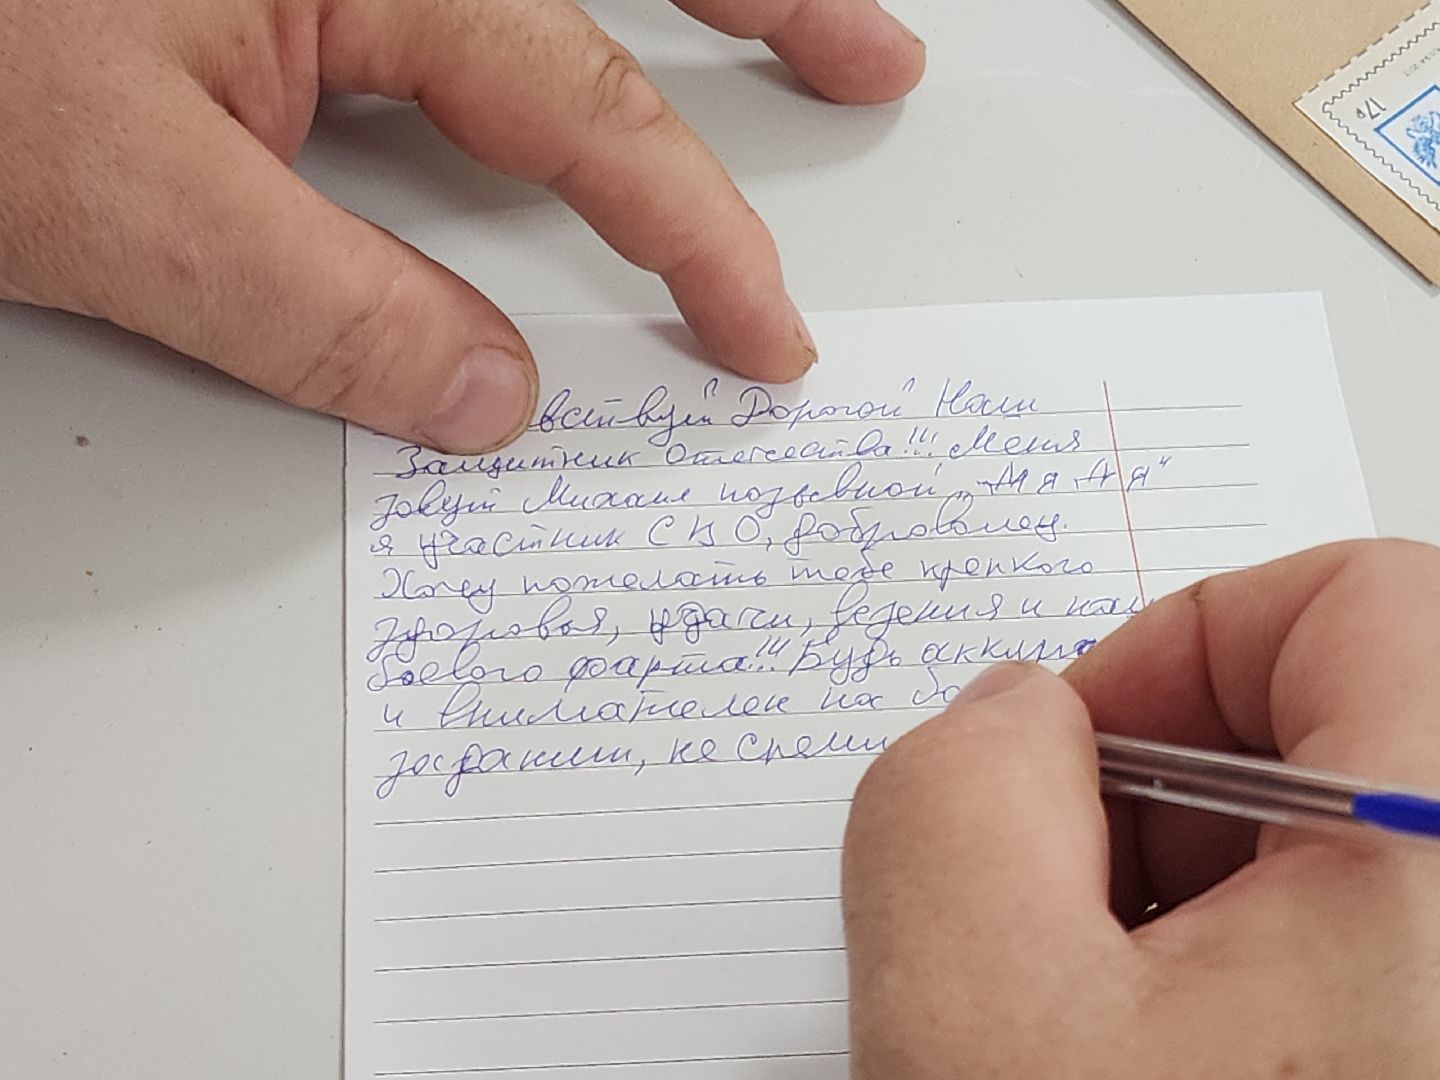 вствуй" Дорогой" Наш
Защитник Отечества!!! Меня
зовут Михаил позывной „ДЯДЯ"
я участник СВО, доброволец.
Хочу пожелать тебе крепкого
здоровья, удачи, везения и
боевого фарта!!! Будь
и внимателен на
задании, не спеши
17р